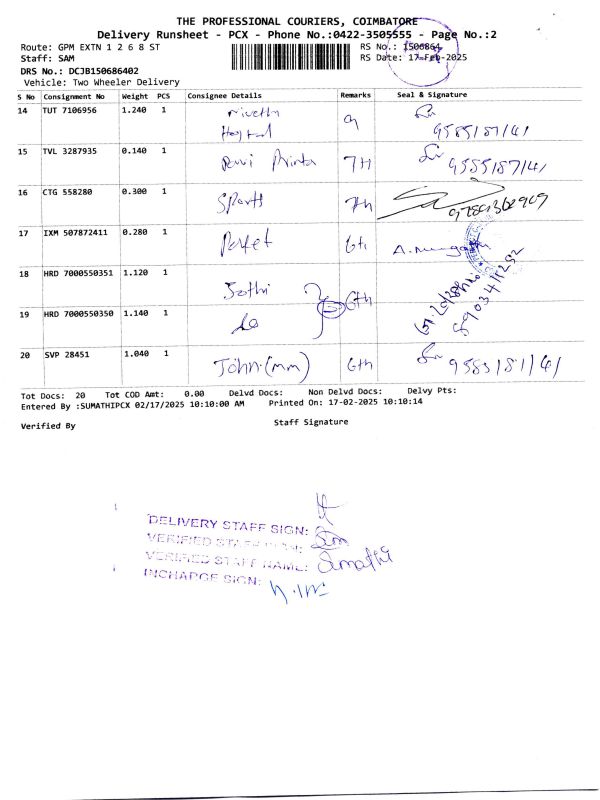 THE PROFESSIONAL COURIERS, COIMBATORE
Delivery Runsheet - PCX - Phone No.:0422-3505555 - Page No.:2
Route: GPM EXTN 1 2 6 8 ST RS No.: 1506864
Staff: SAM RS Date: 17-Feb-2025
DRS No.: DCJB150686402
Vehicle: Two Wheeler Delivery
S No Consignment No Weight PCS Consignee Details Remarks Seal & Signature
14 TUT 7106956 1.240 1
15 TVL 3287935 0.140 1 7th
16 CTG 558280 0.300 1 Sports 7th
17 IXM 507872411 0.280 1 6th
18 HRD 7000550351 1.120 1 Jothi 6th
19 HRD 7000550350 1.140 1
20 SVP 28451 1.040 1 John.(mm) 6th
Tot Docs: 20 Tot COD Amt: 0.00 Delvd Docs: Non Delvd Docs: Delvy Pts:
Entered By :SUMATHIPCX 02/17/2025 10:10:00 AM Printed On: 17-02-2025 10:10:14
Verified By Staff Signature
DELIVERY STAFF SIGN:
VERIFIED STAFF SIGN:
VERIFIED STAFF NAME: Sumathi
INCHARGE SIGN: